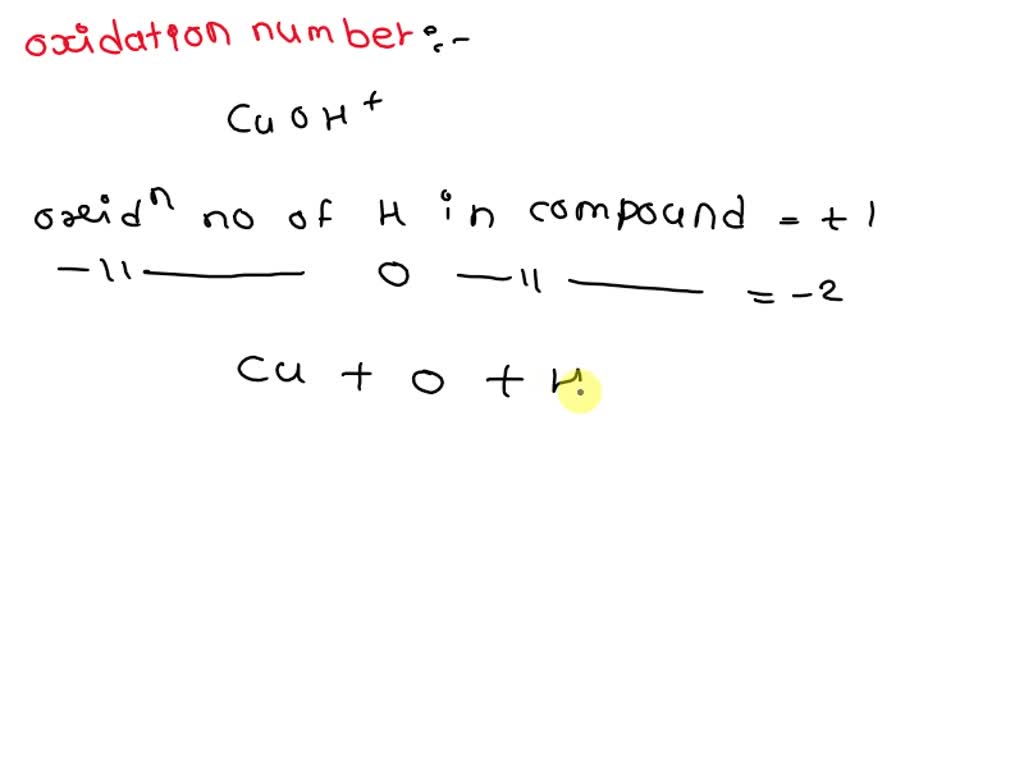 oxidation number :-
CuOH⁺
oxidⁿ no of H in compound = +1
-11— O —11— = -2
Cu + O + H